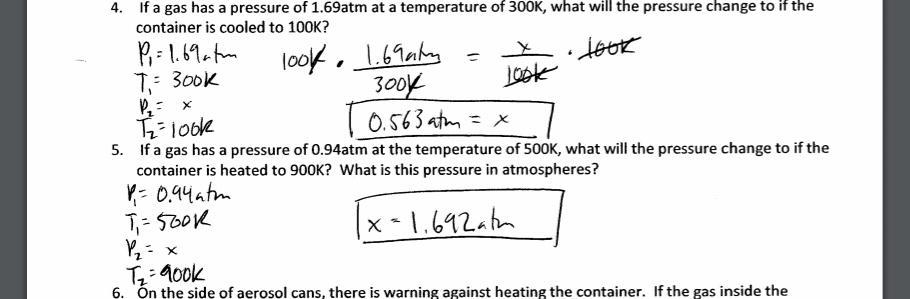 4. If a gas has a pressure of 1.69atm at a temperature of 300K, what will the pressure change to if the
container is cooled to 100K?
P₁ = 1.69atm 100K · 1.69atm / 300K = x / 100K · 100K
T₁ = 300K
P₂ = x
T₂ = 100K 0.563 atm = x
5. If a gas has a pressure of 0.94atm at the temperature of 500K, what will the pressure change to if the
container is heated to 900K? What is this pressure in atmospheres?
P₁ = 0.94atm
T₁ = 500K x = 1.692atm
P₂ = x
T₂ = 900K
6. On the side of aerosol cans, there is warning against heating the container. If the gas inside the